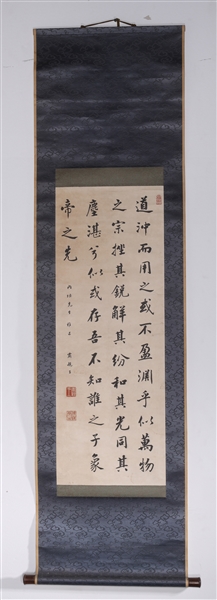 道沖而用之或不盈淵乎似萬物
之宗挫其銳解其紛和其光同其
塵湛兮似或存吾不知誰之子象
帝之先